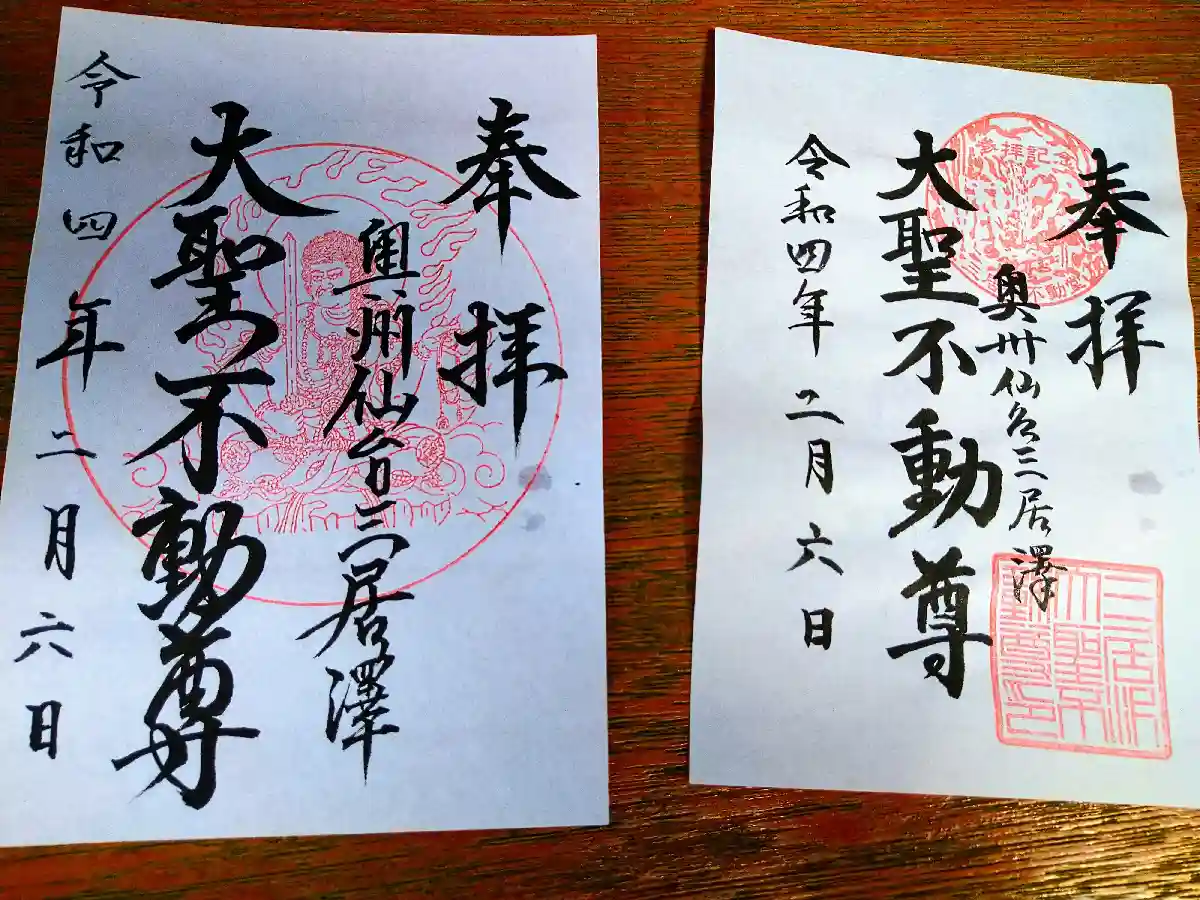 奉拝
奥州仙台三居澤
大聖不動尊
令和四年二月六日
奉拝
奥州仙台三居澤
大聖不動尊
令和四年二月六日
参拝記念
三居沢
大聖不
動尊印